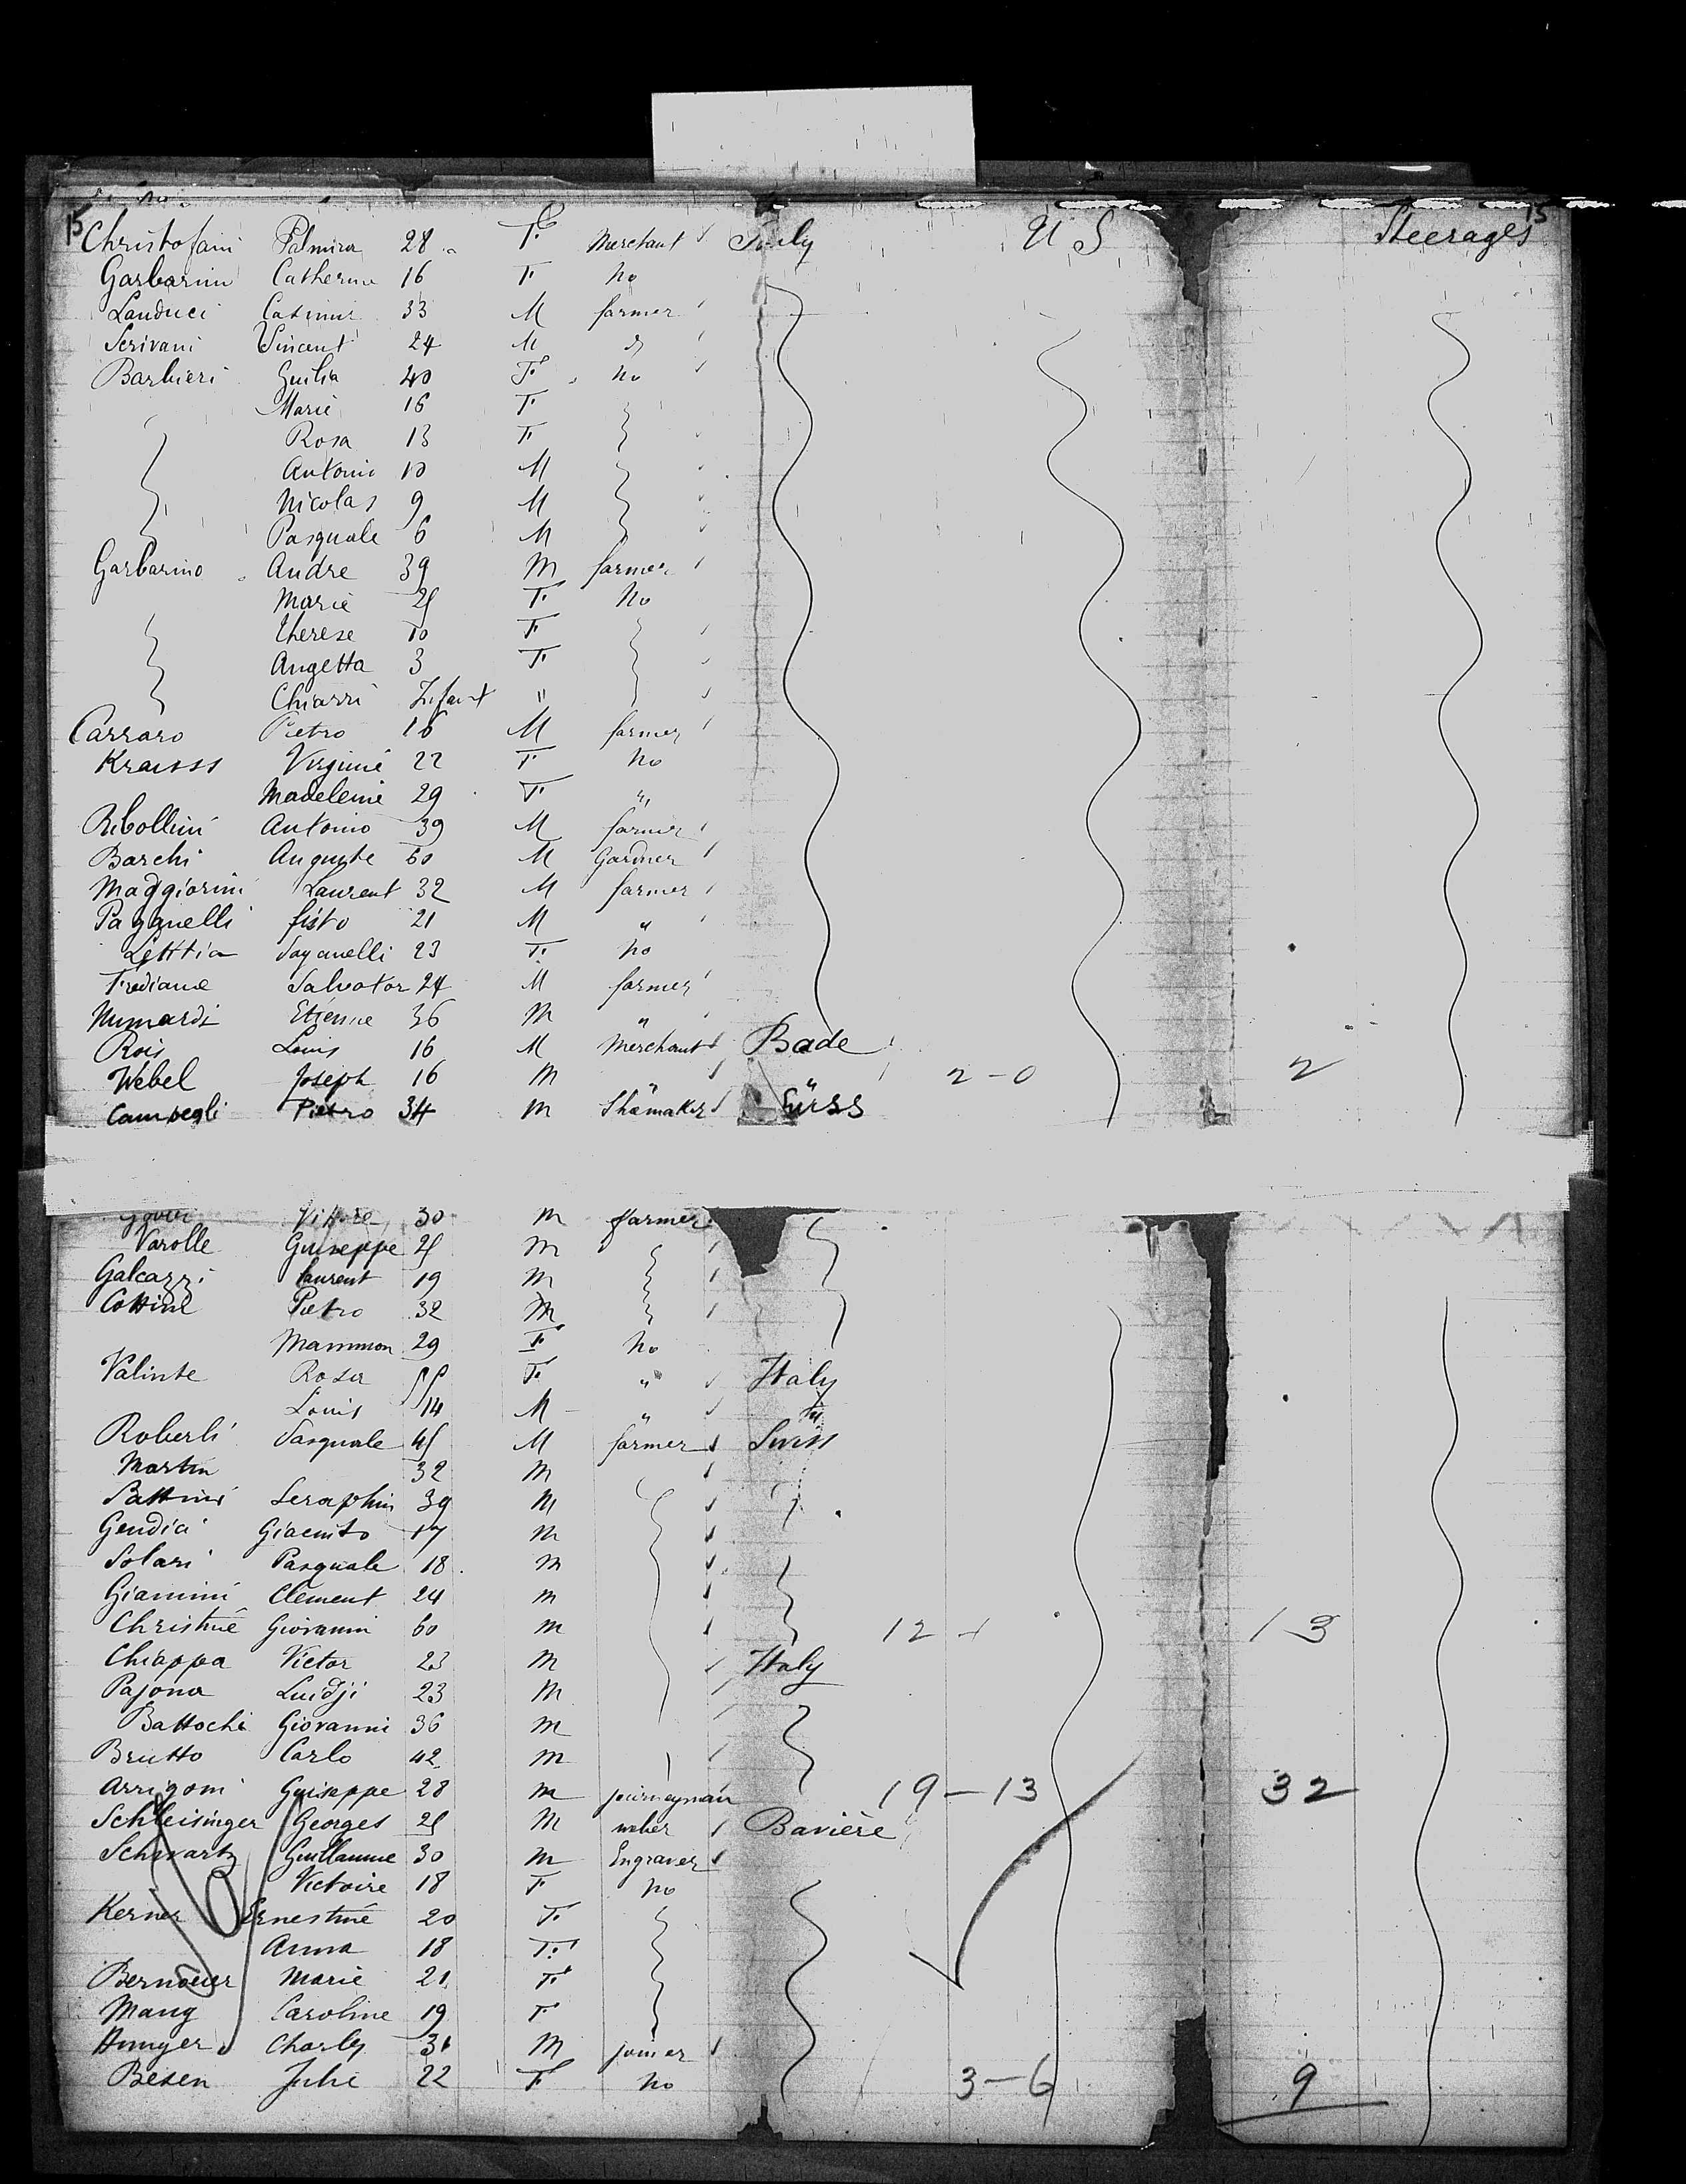 15 15
Christofani Palmira 28 F. Merchant Italy U S Steerages
Garbarini Catherine 16 F. No
Landuci Casimir 33 M farmer
Scrivani Vincent 24 M
Barbieri Guilia 40 F. No
Marie 16 F.
Rosa 13 F.
Antonio 10 M
Nicolas 9 M
Pasquale 6 M
Garbarino Andre 39 M farmer
Marie 25 F. No
Therese 10 F.
Angetta 3 F.
Chiarri Infant "
Carraro Pietro 16 M farmer
Krauss Virginie 22 F. No
Madeleine 29 F. "
Ribollini Antonio 39 M farmer
Barchi Auguste 60 M Gardner
Maggiorini Laurent 32 M farmer
Paganelli fisto 21 M "
Lettia Paganelli 23 F. No
Frediane Salvator 24 M farmer
Mumardi Etienne 36 M "
Rois Louis 16 M Merchant Bade
Webel Joseph 16 M " " 2-0 2
Camsegli Pietro 34 M Shömaker Süss
Vittore 30 M farmer
Varolle Guiseppe 25 M
Galeazzi Laurent 19 M
Cottine Pietro 32 M
Mammon 29 F No
Valinte Rosa 55 F. " Italy
Louis 14 M " "
Roberti Pasquale 45 M farmer Swiss
Martin 32 M
Battini Seraphin 39 M
Gendia Giacinto 17 M
Solari Pasquale 18 M
Giannini Clement 24 M
Christine Giovanni 60 M 12-1 13
Chiappa Victor 23 M Italy
Pajona Luidji 23 M
Battochi Giovanni 36 M
Brutto Carlo 42 M
Arrigoni Guiseppe 28 M journeyman 19-13 32
Schleisinger Georges 25 M weber Bavière
Schwartz Guillaume 30 M Engraver
Victoire 18 F No
Kerner Ernestine 20 F.
Anna 18 F.
Bernouer Marie 21 F.
Mang Caroline 19 F
Hunger Charles 31 M joiner
Besen Julie 22 F No 3-6 9